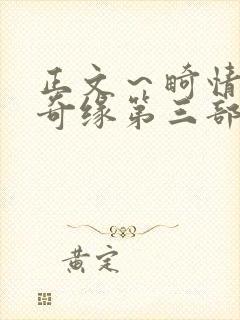 正文～畸情
奇缘第三部
黄定